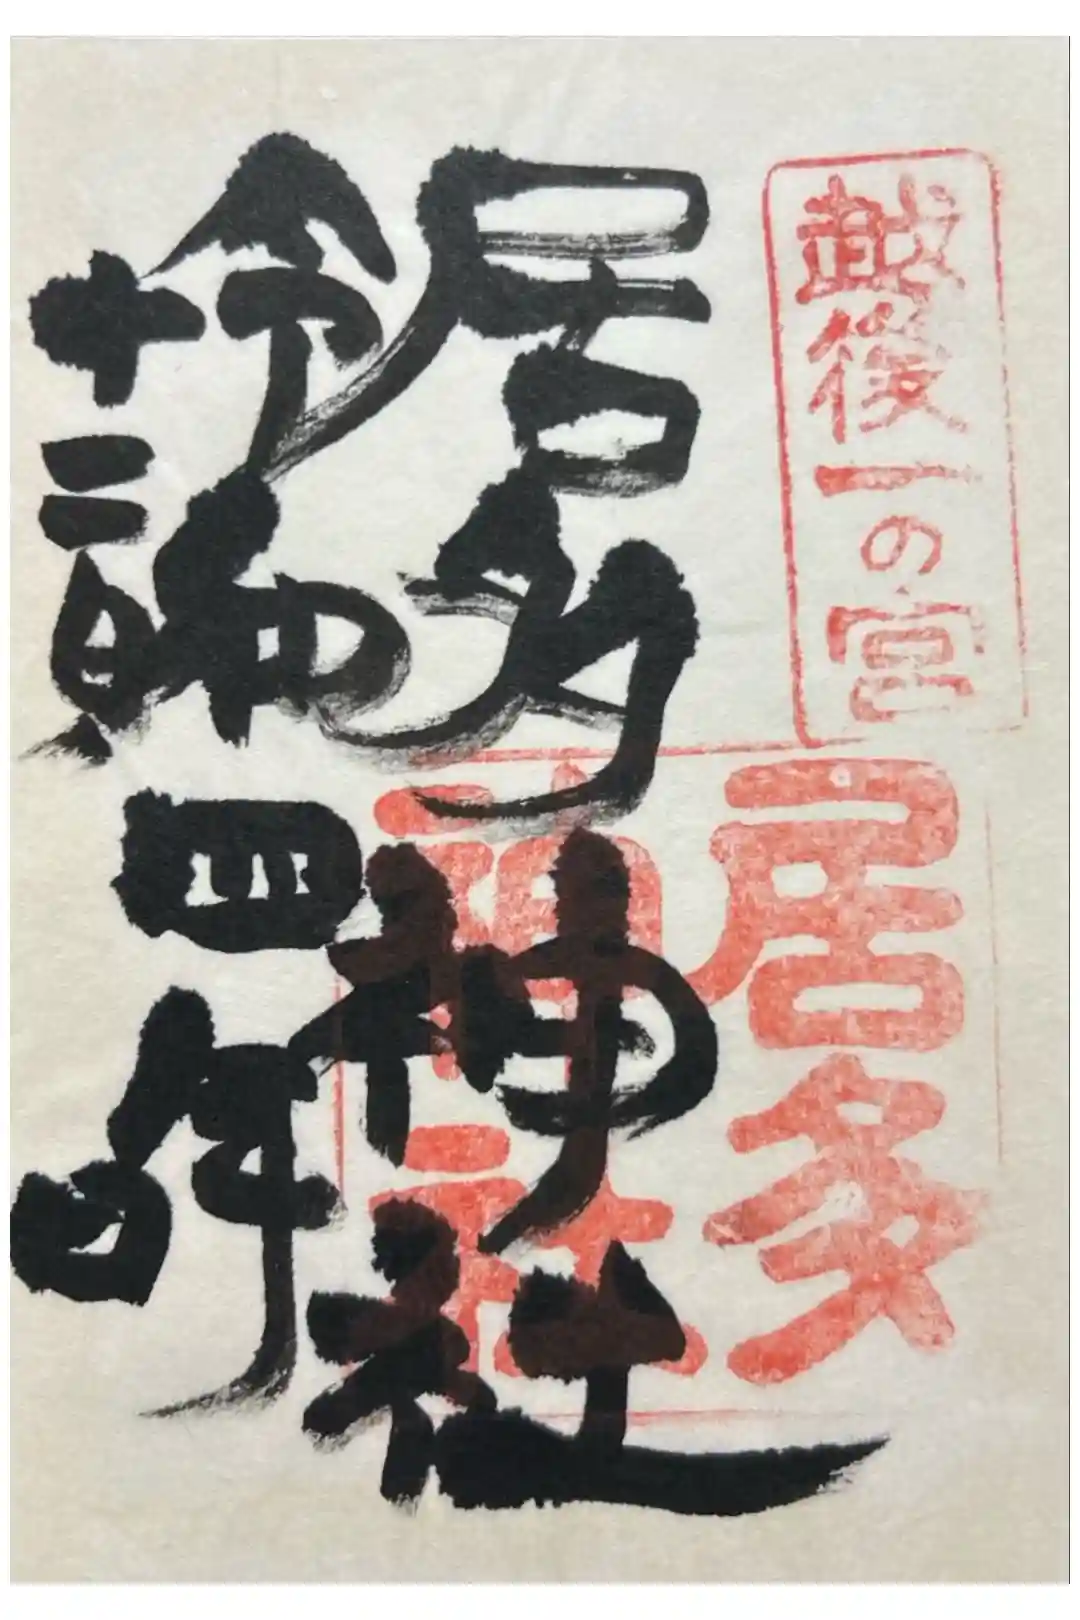 越後一の宮
居多
神社
居多神社
令和四年
十二月
日